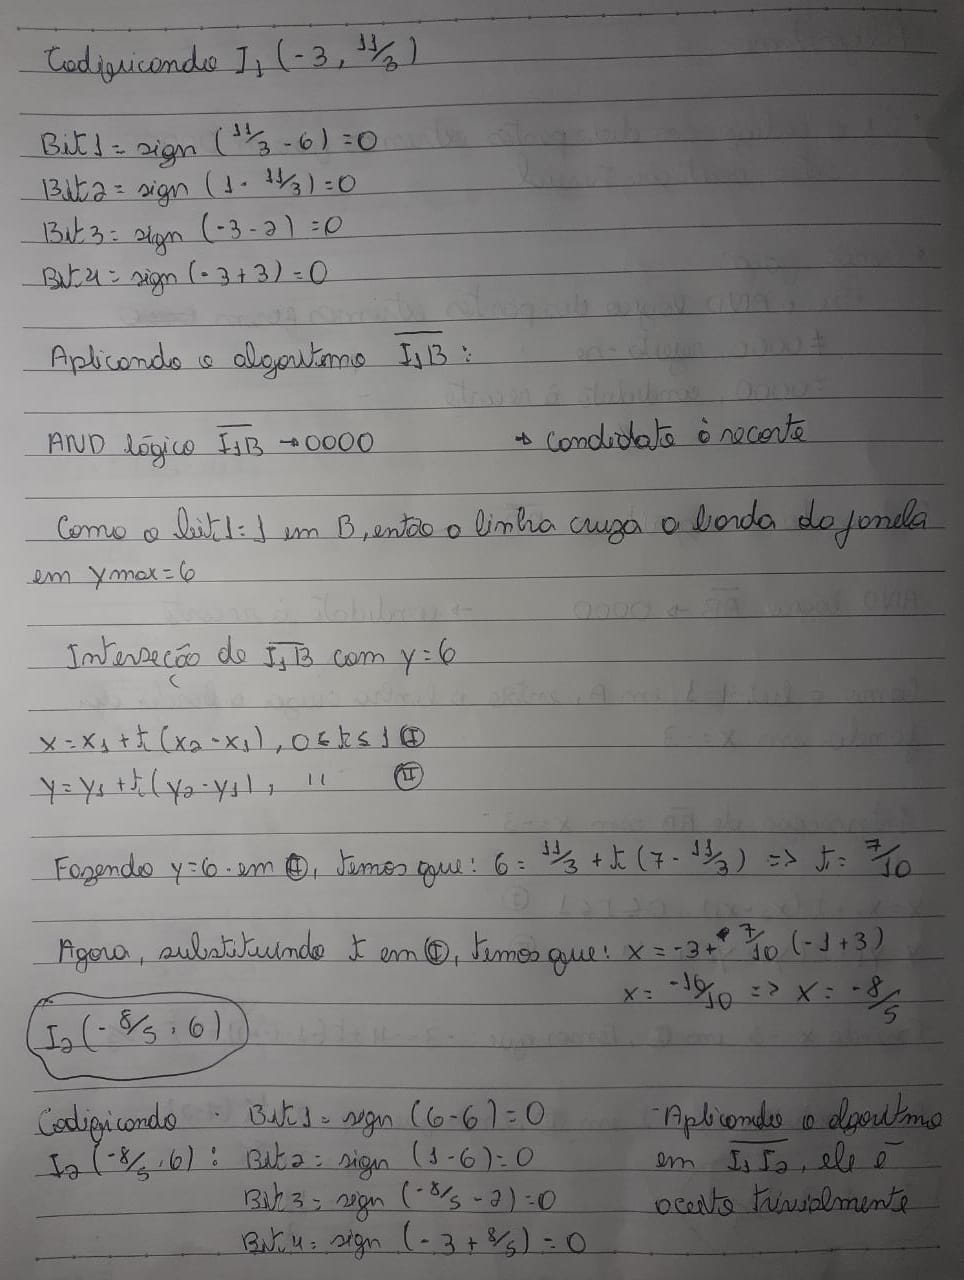 Codificando I₁ (-3, 11/3)
Bit1 = sign (11/3 - 6) = 0
Bit2 = sign (1 - 11/3) = 0
Bit3 = sign (-3 - 2) = 0
Bit4 = sign (-3 + 3) = 0
Aplicando o algoritmo I₁B :
AND lógico I₁B → 0000 → candidato à recorte
Como o bit1 = 1 em B, então a linha cruza a borda da janela
em ymax = 6
Interseção de I₁B com y = 6
x = x₁ + t (x₂ - x₁), 0 ≤ t ≤ 1 Ⓘ
y = y₁ + t (y₂ - y₁), " Ⓘⓘ
Fazendo y = 6 em Ⓘⓘ, temos que: 6 = 11/3 + t (7 - 11/3) => t = 7/10
Agora, substituindo t em Ⓘ, temos que: x = -3 + 7/10 (-1 + 3)
x = -16/10 => x = -8/5
I₂ (-8/5, 6)
Codificando I₂ (-8/5, 6) :
Bit1 = sign (6 - 6) = 0
Bit2 = sign (1 - 6) = 0
Bit3 = sign (-8/5 - 2) = 0
Bit4 = sign (-3 + 8/5) = 0
Aplicando o algoritmo
em I₁I₂, ele é
aceito trivialmente